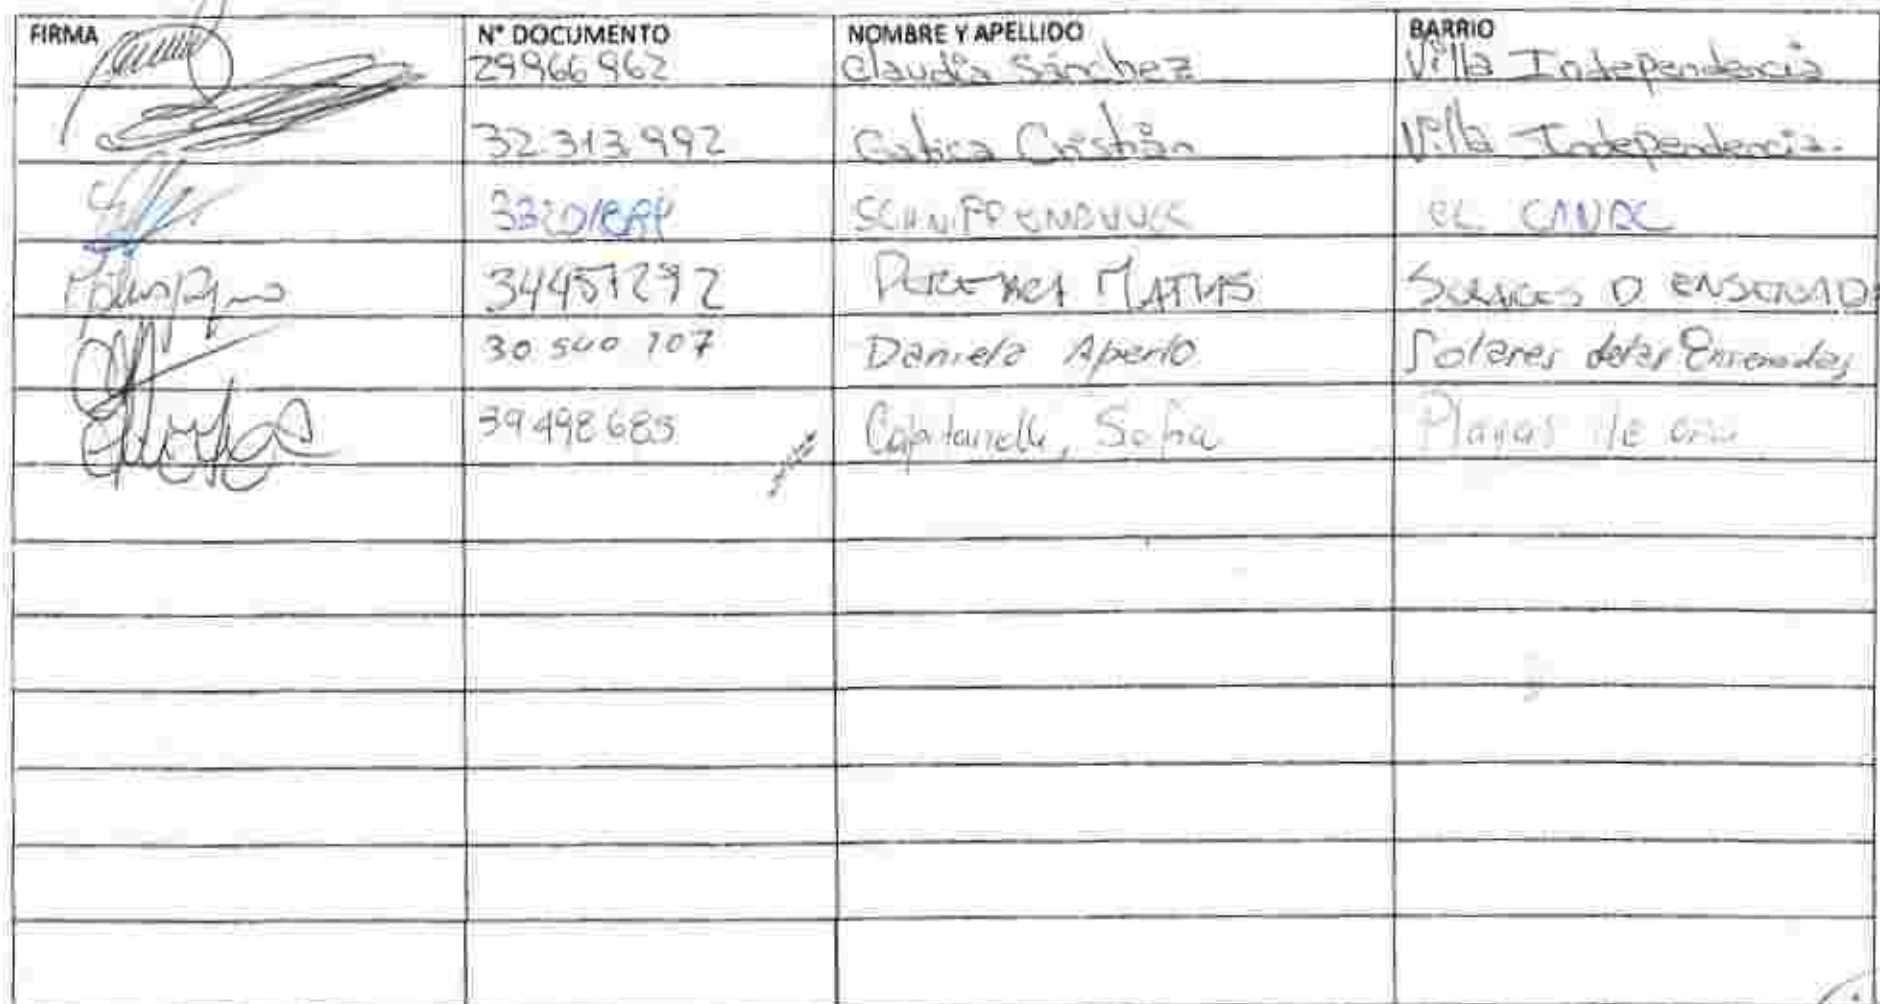 FIRMA N° DOCUMENTO NOMBRE Y APELLIDO BARRIO
29966962 Claudia Sánchez Villa Independencia
32.313.992 Gatica Cristián Villa Independencia.
EL CANAL
34451292 MATIAS
30.540.707 Daniela Aperlo Solares delas Ensenadas
39.498.685 Capitanelli, Sofia Playas de oro